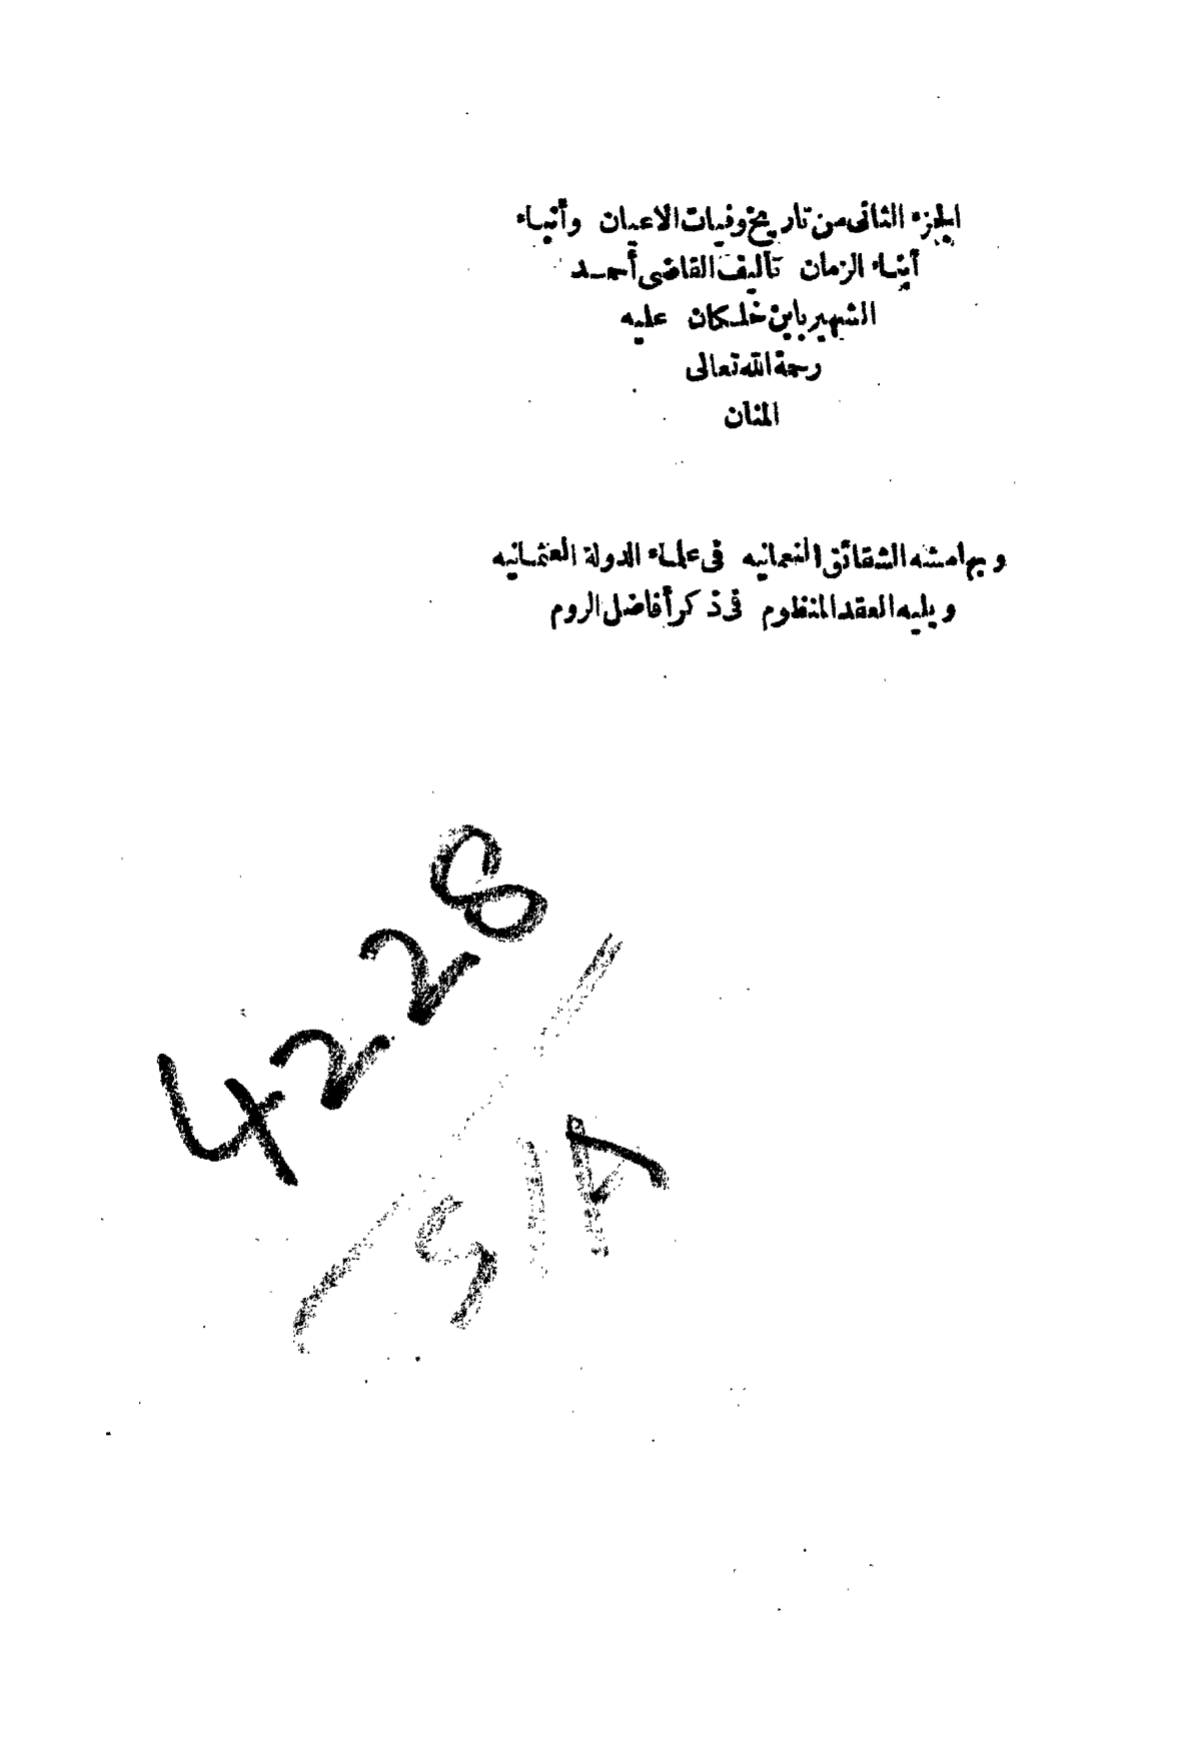 الجزء الثانى من تاريخ وفيات الاعيان وأنباء
أبناء الزمان تأليف القاضى أحمد
الشهير بابن خلكان عليه
رحمة الله تعالى
المنان
وبهامشه الشقائق النعمانيه فى علماء الدولة العثمانيه
ويليه العقد المنظوم فى ذكر أفاضل الروم
4228